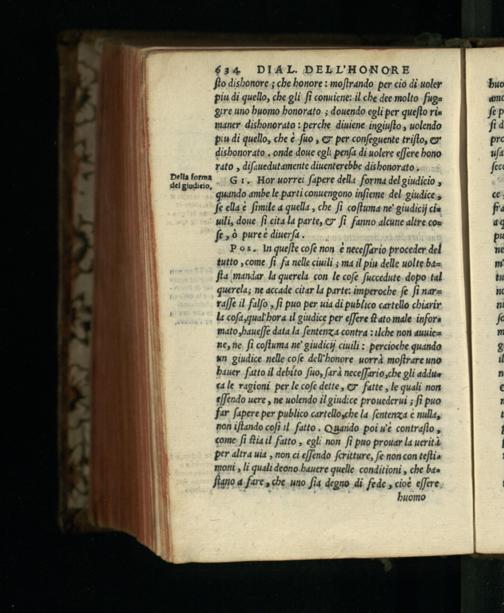 634 DIAL. DELL'HONORE
sto dishonore; che honore: mostrando per ciò di uoler
piu di quello, che gli si conuiene: il che dee molto fug-
gire uno huomo honorato; douendo egli per questo ri-
maner dishonorato: perche diuiene ingiusto, uolendo
piu di quello, che è suo, & per conseguente tristo, &
dishonorato. onde doue egli pensa di uolere essere hono
rato, disauedutamente diuenterebbe dishonorato.
Della forma
del giudicio.
GI. Hor uorrei sapere della forma del giudicio,
quando ambe le parti conuengono insieme del giudice,
se ella è simile a quella, che si costuma ne' giudicij ci-
uili, doue si cita la parte, & si fanno alcune altre co-
se, ò pure è diuersa.
POS. In queste cose non è necessario proceder del
tutto, come si fa nelle ciuili; ma il piu delle uolte ba-
sta mandar la querela con le cose succedute dopo tal
querela; ne accade citar la parte: imperoche se si nar-
rasse il falso, si puo per uia di publico cartello chiarir
la cosa, qual'hora il giudice per essere stato male infor-
mato, hauesse data la sentenza contra: ilche non auuie-
ne, ne si costuma ne' giudicij ciuili: percioche quando
un giudice nelle cose dell'honore uorrà mostrare uno
hauer fatto il debito suo, sarà necessario, che gli addu-
ca le ragioni per le cose dette, & fatte, le quali non
essendo uere, ne uolendo il giudice prouederui; si può
far sapere per publico cartello, che la sentenza è nulla,
non istando così il fatto. Quando poi u'è contrasto,
come si stia il fatto, egli non si può prouar la uerità
per altra uia, non ci essendo scritture, se non con testi-
moni, li quali deono hauere quelle conditioni, che ba-
stano a fare, che uno sia degno di fede, cioè essere
huomo